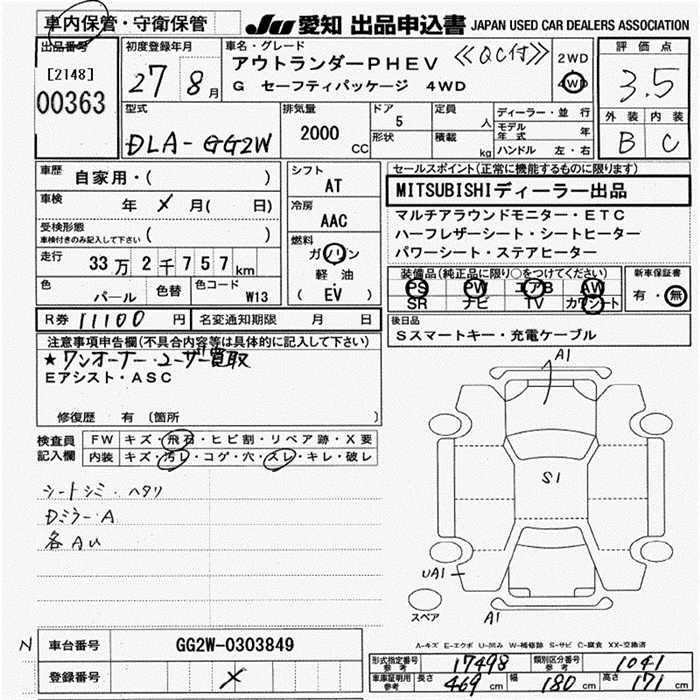 車内保管・守衛保管 JU 愛知 出品申込書 JAPAN USED CAR DEALERS ASSOCIATION
出品番号 [2148] 00363
初度登録年月 27 8月
車名・グレード アウトランダーPHEV 《QC付》
G セーフティパッケージ 4WD
2WD 4WD
評価点 3.5
外装 内装
B C
型式 DLA-GG2W
排気量 2000 CC
ドア 5
形状
定員 人
積載 kg
ディーラー・並行
モデル年式 年
ハンドル 左・右
車歴 自家用・( )
車検 年 メ 月( 日)
受検形態 車検付きのみ記入して下さい ( )
走行 33万2千757km
色 パール 色替 色コード W13
シフト AT
冷房 AAC
燃料 ガソリン 軽油・( EV )
セールスポイント(正常に機能するものに限ります)
MITSUBISHIディーラー出品
マルチアラウンドモニター・ETC
ハーフレザーシート・シートヒーター
パワーシート・ステアヒーター
装備品(純正品に限り○をつけてください)
PS PW エアB AW
SR ナビ TV カワシート
新車保証書 有・無
R券 11100 円 名変通知期限 月 日
後日品
Sスマートキー・充電ケーブル
注意事項申告欄(不具合内容等は具体的に記入して下さい)
★ワンオーナー・ユーザー買取
Eアシスト・ASC
修復歴 有 〔箇所 〕
検査員記入欄
FW キズ・飛石・ヒビ割・リペア跡・X要
内装 キズ・汚レ・コゲ・穴・スレ・キレ・破レ
シートシミ・ヘタリ
Dミラー A
各AU
A1
S1
UA1
A1
スペア
A-キズ E-エクボ U-凹み W-補修跡 S-サビ C-腐食 XX-交換済
N 車台番号 GG2W-0303849
登録番号 メ
形式指定番号 参考 17498 類別区分番号 参考 1041
車庫証明用 参考 長さ 469 cm 幅 180 cm 高さ 171 cm